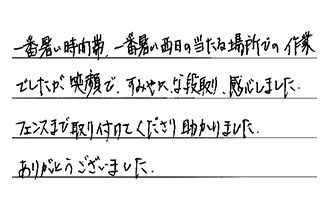 一番暑い時間帯、一番暑い西日の当たる場所での作業
でしたが、笑顔で、すみやかな段取り、感心しました。
フェンスまで取り付けてくださり助かりました。
ありがとうございました。